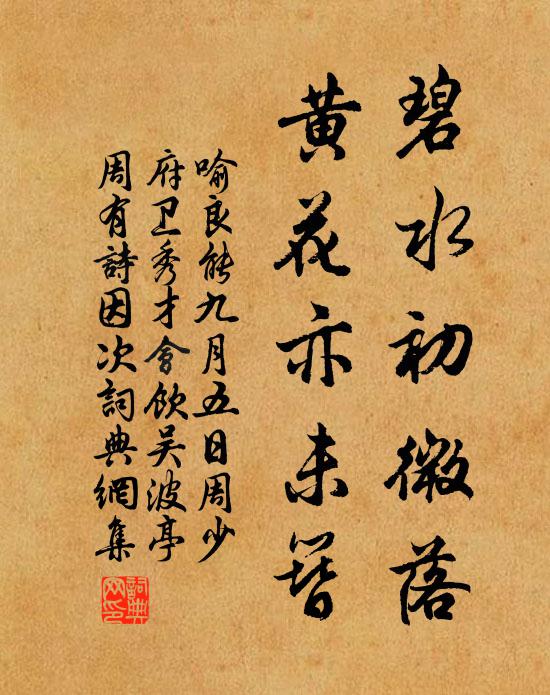 碧水初微落
黄花亦未簪
喻良能九月五日周少
府卫秀才會飲吴波亭
周有詩因次詞典網集
詞典網印